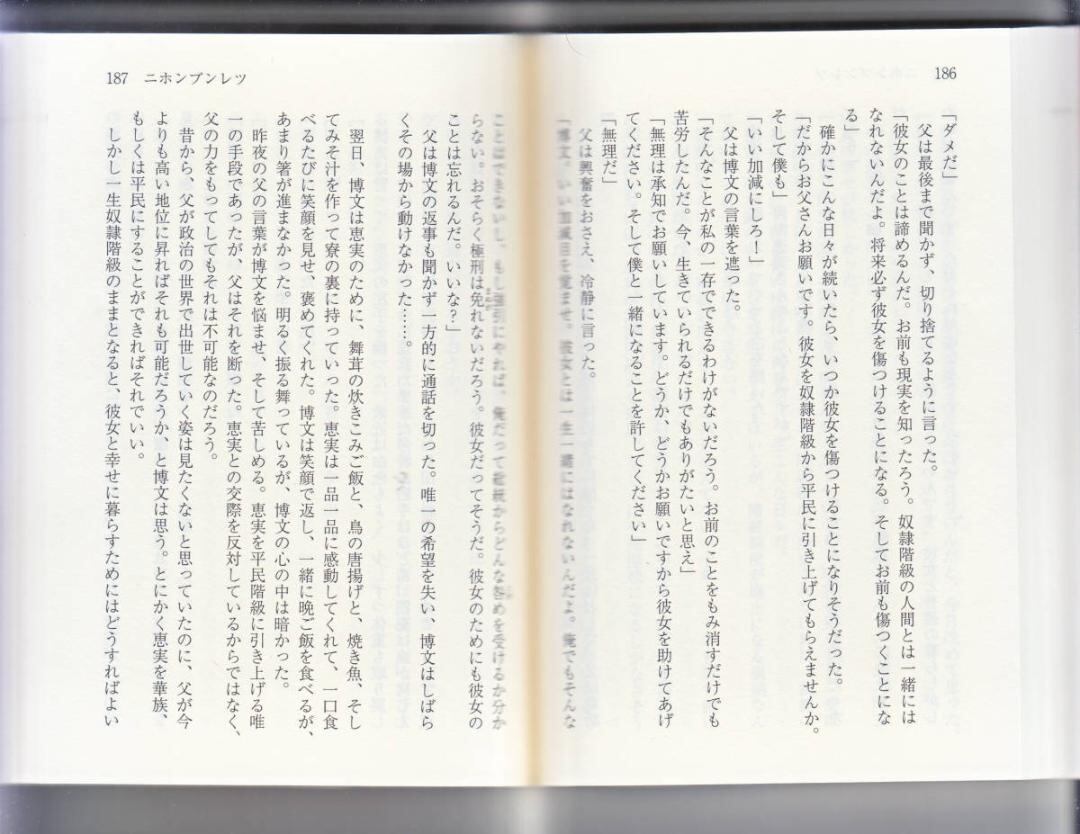 186
「ダメだ」
父は最後まで聞かず、切り捨てるように言った。
「彼女のことは諦めるんだ。お前も現実を知ったろう。奴隷階級の人間とは一緒には
なれないんだよ。将来必ず彼女を傷つけることになる。そしてお前も傷つくことにな
る」
確かにこんな日々が続いたら、いつか彼女を傷つけることになりそうだった。
「だからお父さんお願いです。彼女を奴隷階級から平民に引き上げてもらえませんか。
そして僕も」
「いい加減にしろ！」
父は博文の言葉を遮った。
「そんなことが私の一存でできるわけがないだろう。お前のことをもみ消すだけでも
苦労したんだ。今、生きていられるだけでもありがたいと思え」
「無理は承知でお願いしています。どうか、どうかお願いですから彼女を助けてあげ
てください。そして僕と一緒になることを許してください」
「無理だ」
父は興奮をおさえ、冷静に言った。
「博文。いい加減目を覚ませ。彼女とは一生一緒にはなれないんだよ。俺でもそんな
187 ニホンブンレツ
ことはできないし、もし強引にやれば、俺だって総統からどんな咎めを受けるか分か
らない。おそらく極刑は免れないだろう。彼女だってそうだ。彼女のためにも彼女の
ことは忘れるんだ。いいな？」
父は博文の返事も聞かず一方的に通話を切った。唯一の希望を失い、博文はしばら
くその場から動けなかった……。
翌日、博文は恵実のために、舞茸の炊きこみご飯と、鳥の唐揚げと、焼き魚、そし
てみそ汁を作って寮の裏に持っていった。恵実は一品一品に感動してくれて、一口食
べるたびに笑顔を見せ、褒めてくれた。博文は笑顔で返し、一緒に晩ご飯を食べるが、
あまり箸が進まなかった。明るく振る舞っているが、博文の心の中は暗かった。
昨夜の父の言葉が博文を悩ませ、そして苦しめる。恵実を平民階級に引き上げる唯
一の手段であったが、父はそれを断った。恵実との交際を反対しているからではなく、
父の力をもってしてもそれは不可能なのだろう。
昔から、父が政治の世界で出世していく姿は見たくないと思っていたのに、父が今
よりも高い地位に昇ればそれも可能だろうか、と博文は思う。とにかく恵実を華族、
もしくは平民にすることができればそれでいい。
しかし一生奴隷階級のままとなると、彼女と幸せに暮らすためにはどうすればよい